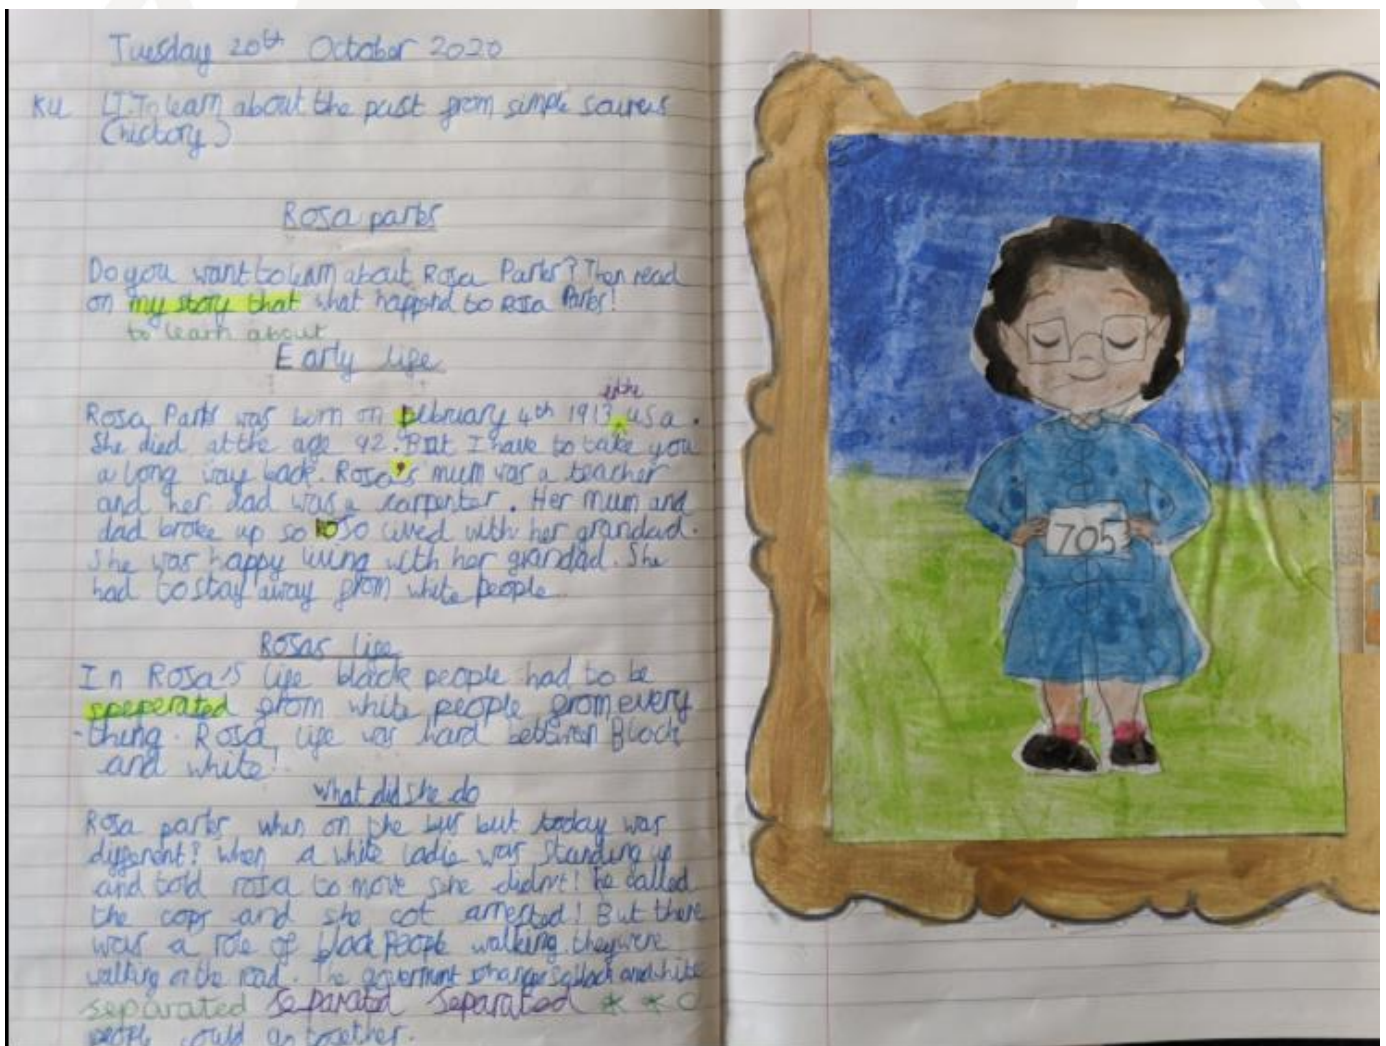 Tuesday 20th October 2020
KU LI To learn about the past from simple sources
(history)
Rosa parks
Do you want to learn about Rosa Parks? Then read
on my story that what happend to Rosa Parks!
to learn about
Early life
in the
Rosa Parks was born on February 4th 1913, usa.
She died at the age 92. But I have to take you
a long way back. Rosa's mum was a teacher
and her dad was a carpenter. Her mum and
dad broke up so roso lived with her grandad.
She was happy living with her grandad. She
had to stay away from white people.
Rosas life
In Rosa's life black people had to be
speperated from white people from every
-thing. Rosa life was hard between Black
and white!
What did she do
Rosa parks when on the bus but today was
different? When a white ladie was standing up
and told rosa to move she didn't! he called
the cops and she got arrested! But there
was a role of black people walking. they were
walking on the road. The goverment so black and white
separated separated separated * * C
people could go together.
705